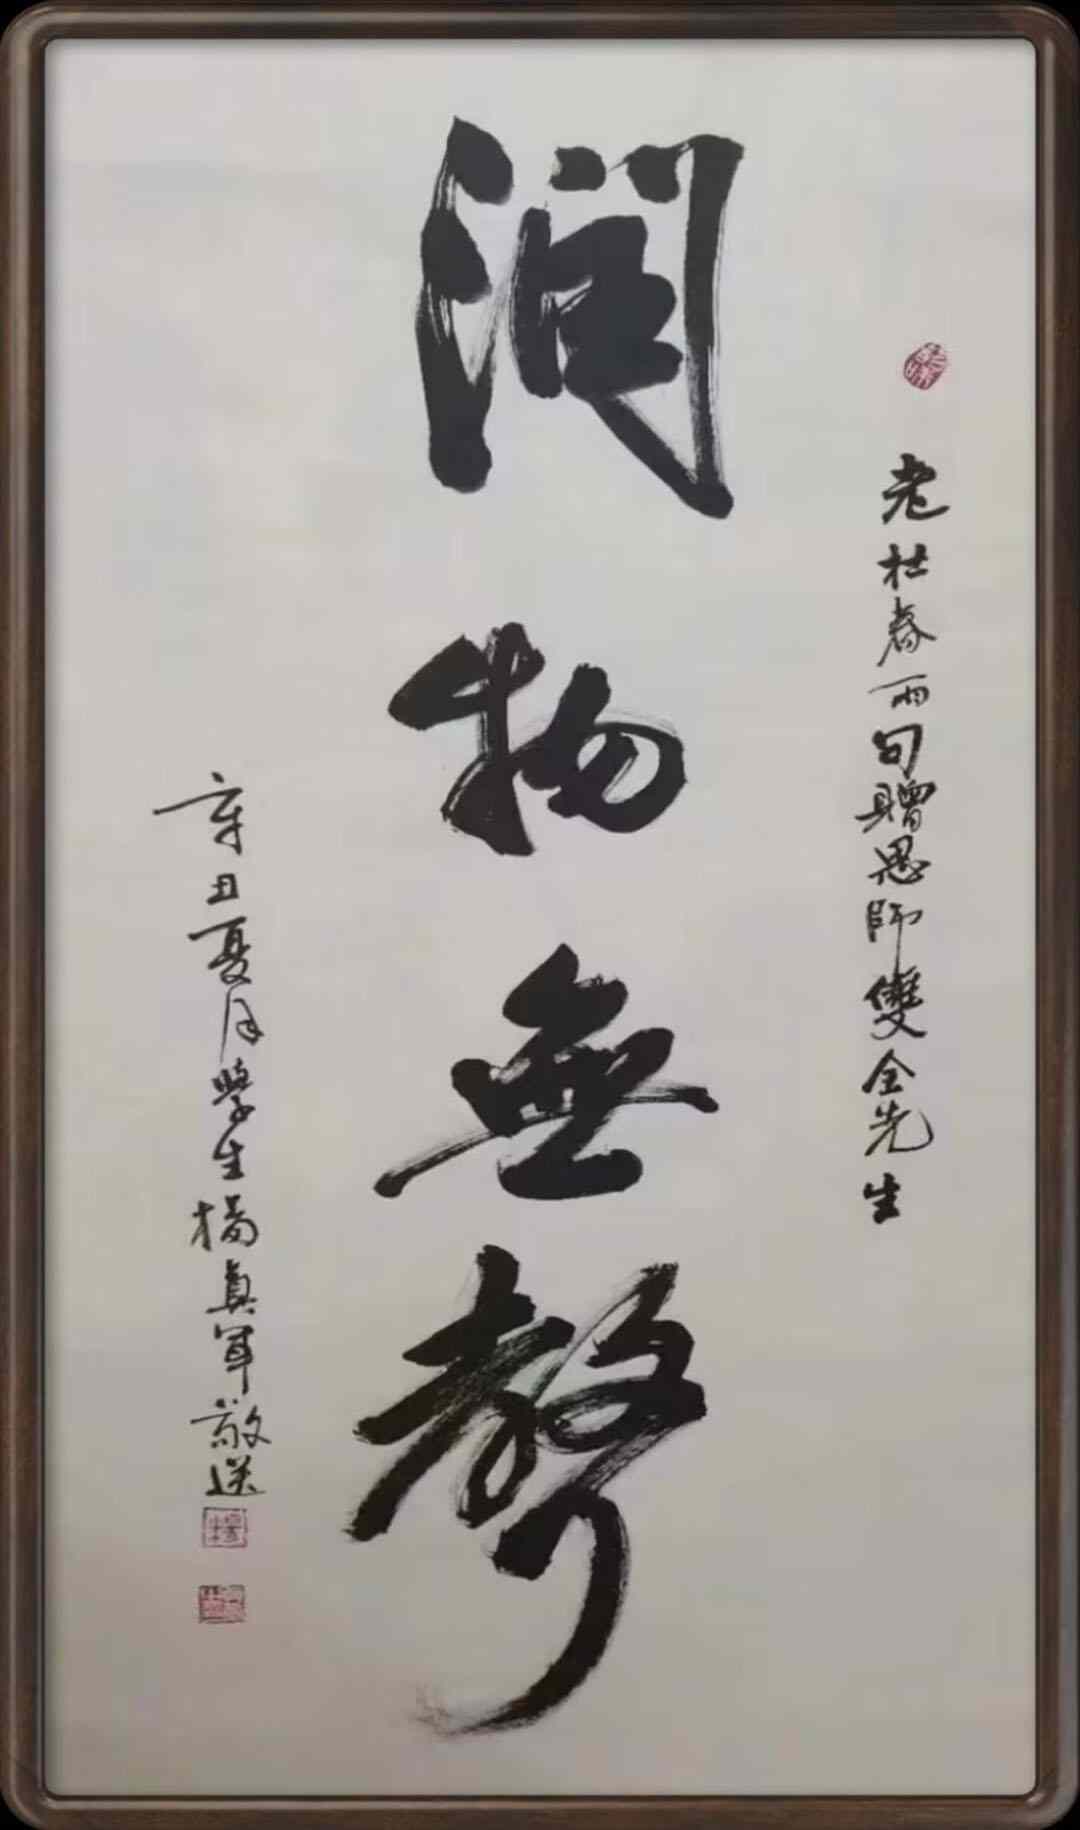 老杜春雨句贈恩師雙全先生
润物無聲
辛丑夏月學生楊真軍敬送
楊